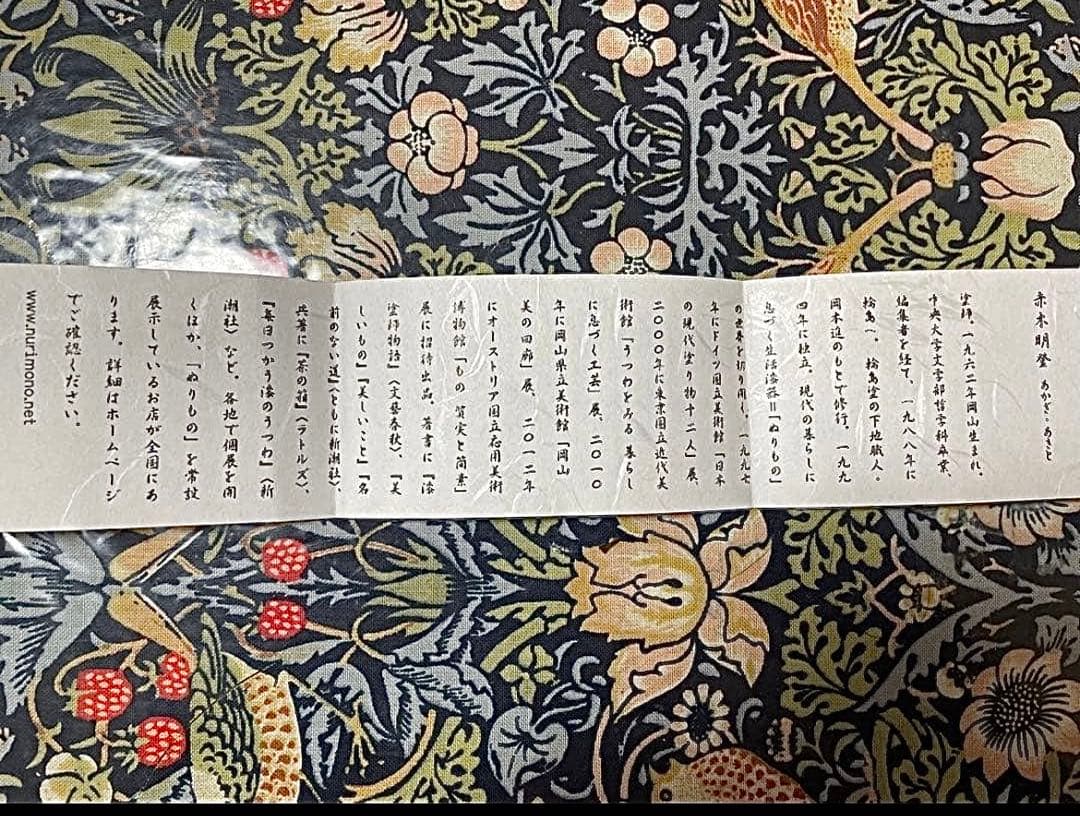 赤木明登 あかぎ・あきと
塗師。一九六二年岡山生まれ。
中央大学文学部哲学科卒業、
編集者を経て、一九八八年に
輪島へ。輪島塗の下地職人。
岡本進のもとで修行、一九九
四年に独立。現代の暮らしに
息づく生活漆器＝「ぬりもの」
の世界を切り開く。一九九七
年にドイツ国立美術館「日本
の現代塗り物十二人」展、
二〇〇〇年に東京国立近代美
術館「うつわをみる 暮らし
に息づく工芸」展、二〇一〇
年に岡山県立美術館「岡山
美の回廊」展、二〇一二年
にオーストリア国立応用美術
博物館「もの 質実と簡素」
展に招待出品。著書に『漆
塗師物語』（文藝春秋）、『美
しいもの』『美しいこと』『名
前のない道』（ともに新潮社）、
共著に『茶の箱』（ラトルズ）、
『毎日つかう漆のうつわ』（新
潮社）など。各地で個展を開
くほか、「ぬりもの」を常設
展示しているお店が全国にあ
ります。詳細はホームページ
でご確認ください。
www.nurimono.net